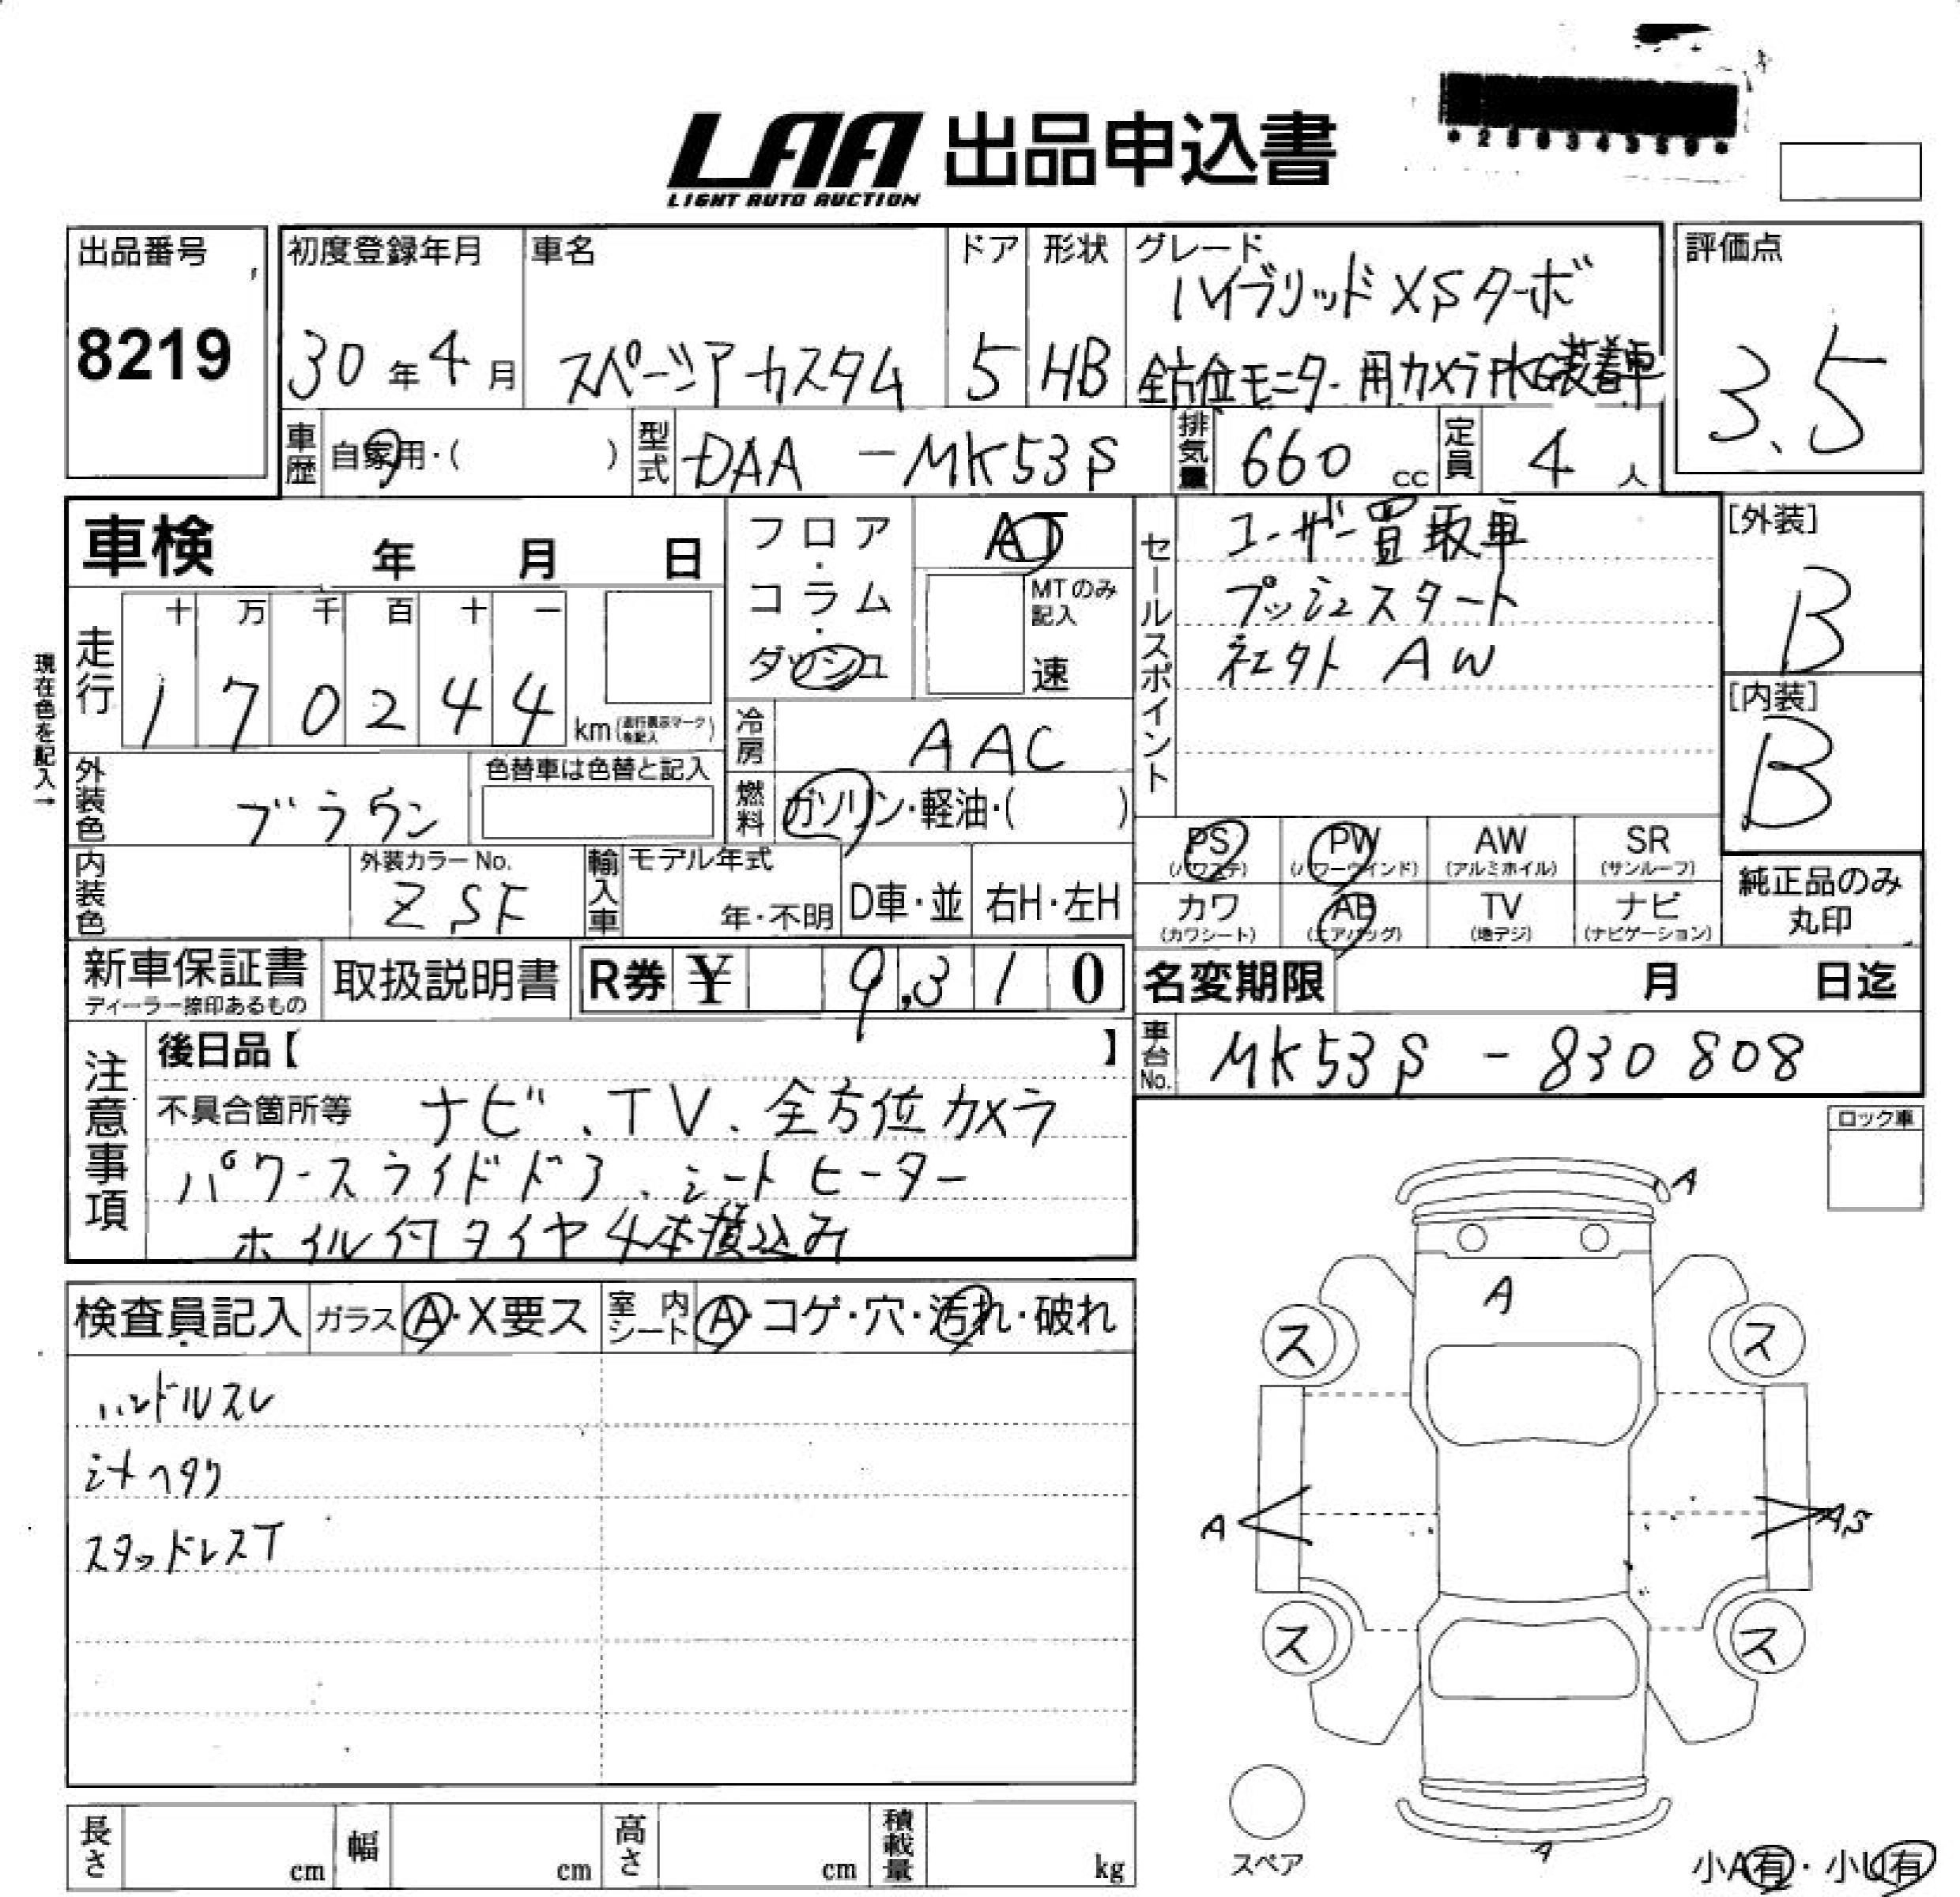 LAA 出品申込書
LIGHT AUTO AUCTION
出品番号
8219
初度登録年月
30年4月
車名
スペーシアカスタム
ドア
5
形状
HB
グレード
ハイブリッドXSターボ
全方位モニター用カメラPKG装着車
評価点
3.5
車歴
自家用・( )
型式
DAA-MK53S
排気量
660 cc
定員
4 人
車検 年 月 日
フロア・コラム・ダッシュ
AT
MTのみ記入
速
セールスポイント
ユーザー買取車
プッシュスタート
社外AW
[外装]
B
[内装]
B
現在色を記入→
走行
十 万 千 百 十 一
1 7 0 2 4 4 km
冷房
AAC
外装色
ブラウン
色替車は色替と記入
燃料
ガソリン・軽油・( )
PS
(パワステ)
PW
(パワーウインド)
AW
(アルミホイル)
SR
(サンルーフ)
カワ
(カワシート)
AB
(エアバッグ)
TV
(地デジ)
ナビ
(ナビゲーション)
純正品のみ
丸印
内装色
外装カラーNo.
ZSF
輸入車
モデル年式
年・不明
D車・並
右H・左H
新車保証書
ディーラー捺印あるもの
取扱説明書
R券 ¥ 9,310
名変期限 月 日迄
車台No.
MK53S - 830808
注意事項
後日品【 】
不具合箇所等 ナビ、TV、全方位カメラ
パワースライドドア、シートヒーター
ホイル付タイヤ4本積込み
ロック車
検査員記入
ガラス A・X要ス
室内シート A・コゲ・穴・汚れ・破れ
ハンドルスレ
シートヘタリ
スタッドレスT
A
A
ス
ス
A
AS
ス
ス
A
スペア
小A有・小U有
長さ cm
幅 cm
高さ cm
積載量 kg